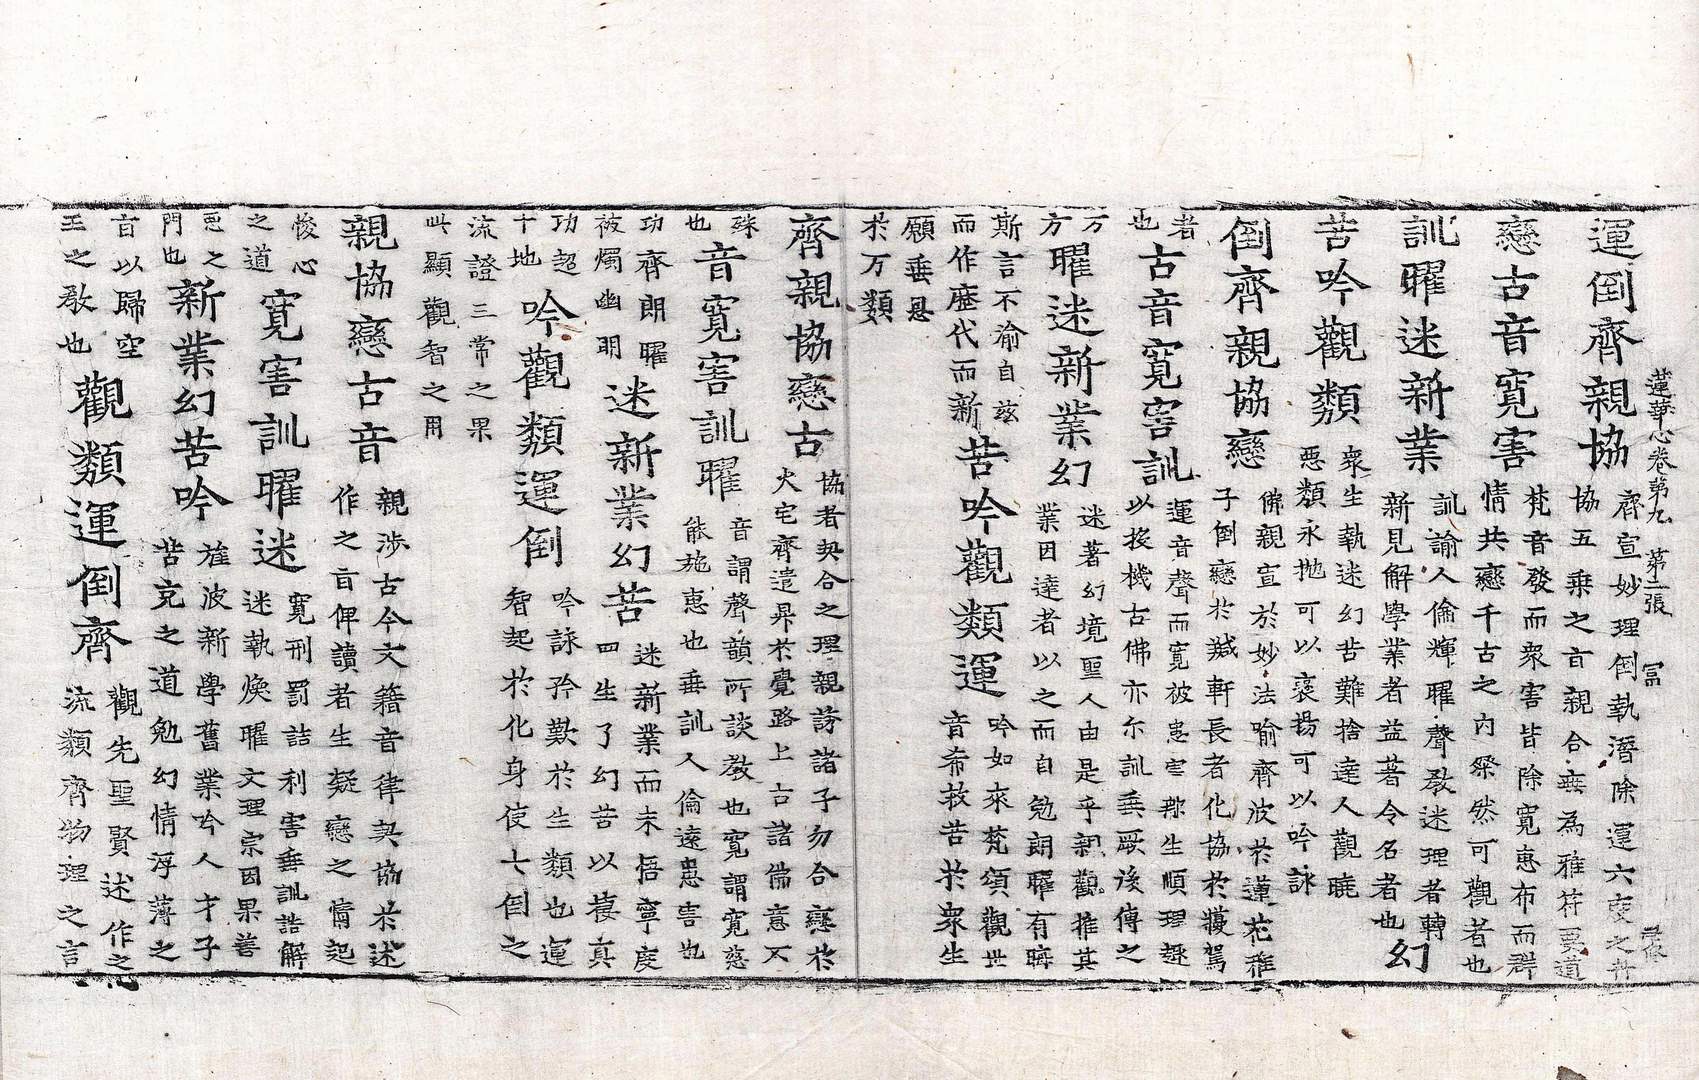 蓮華心卷第九 第二張 冨
運倒齊親協
齊宣妙理倒執潛除運六度之舟
協五乗之言親合無為雅符要道
戀古音寛害
梵音發而衆害皆除寛惠布而群
情共戀千古之內粲然可觀者也
訓曜迷新業
訓諭人倫輝曜聲教迷理者轉
新見解學業者益著令名者也
幻
苦吟觀類
衆生執迷幻苦難捨達人觀曉
惡類永抛可以褒揚可以吟詠
倒齊親協戀
佛親宣於妙法喻齊波於蓮花稚
子倒戀於羸軒長者化協於鹿駕
者
也
古音寛害訓
運音聲而寛被患害郡生順理趣
以投機古佛亦尓訓垂厥後傳之
万
方
曜迷新業幻
迷著幻境聖人由是乎親觀推其
業因達者以之而自勉朗曜有瞬
斯言不渝自玆
而作歴代而新
苦吟觀類運
吟如來梵頌觀世
音希救苦於衆生
願垂恩
於万類
齊親協戀古
協者契合之理親謗諸子勿合戀於
火宅齊遣昇於覺路上古諸佛意不
殊
也
音寛害訓曜
音謂聲韻所談教也寛謂寛慈
能施惠也垂訓人倫遠患害也
功齊朗曜
被燭幽明
迷新業幻苦
迷新業而未悟寧度
四生了幻苦以棲真
功超
十地
吟觀類運倒
吟詠矜歎於生類也運
智起於化身使七倒之
流證三常之果
此顯觀智之用
親協戀古音
親涉古今文籍音律契協於述
作之言俾讀者生疑戀之情起
悛心
之道
寛害訓曜迷
寛刑罰詰利害垂訓誥解
迷執煥曜文理宗因果善
惡之
門也
新業幻苦吟
旌波新學舊業吟人才子
苦克之道勉幻情浮薄之
言以歸空
王之教也
觀類運倒齊
觀先聖賢述作之
流類齊物理之言